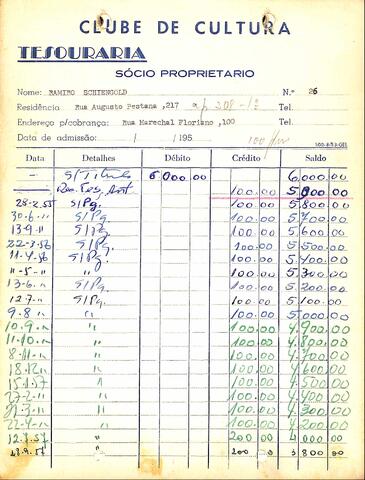 CLUBE DE CULTURA
TESOURARIA
SÓCIO PROPRIETARIO
Nome: RAMIRO SCHIENGOLD N.º 26
Residência Rua Augusto Pestana ,217 ap 208-12 Tel.
Endereço p/cobrança: Rua Marechal Floriano ,100 Tel.
Data de admissão: / / 195
Data Detalhes Débito Crédito Saldo
— S/Titulo 6.000.00 6.000.00
— 100.00 5.900.00
28-2.55 S/Pg. 100.00 5.800.00
30-6." S/Pg. 100.00 5.700.00
13-9-" S/Pg. 100.00 5.600.00
22-3-56 S/Pg. 100.00 5.500.00
11-4-56 S/Pg. 100.00 5.400.00
11-5-" " 100.00 5.300.00
13-6-" S/Pg. 100.00 5.200.00
12.7-" S/Pg. 100.00 5.100.00
9-8-" " 100.00 5.000.00
10.9-" " 100.00 4.900.00
11-10-" " 100.00 4.800.00
8-11-" " 100.00 4.700.00
18.12" " 100.00 4.600.00
15.1.57 " 100.00 4.500.00
27-2-" " 100.00 4.400.00
21-3-" " 100.00 4.300.00
22-4-" " 100.00 4.200.00
12.7.57 " 200 00 4 000 00
28.9.57 200 00 3 800 00